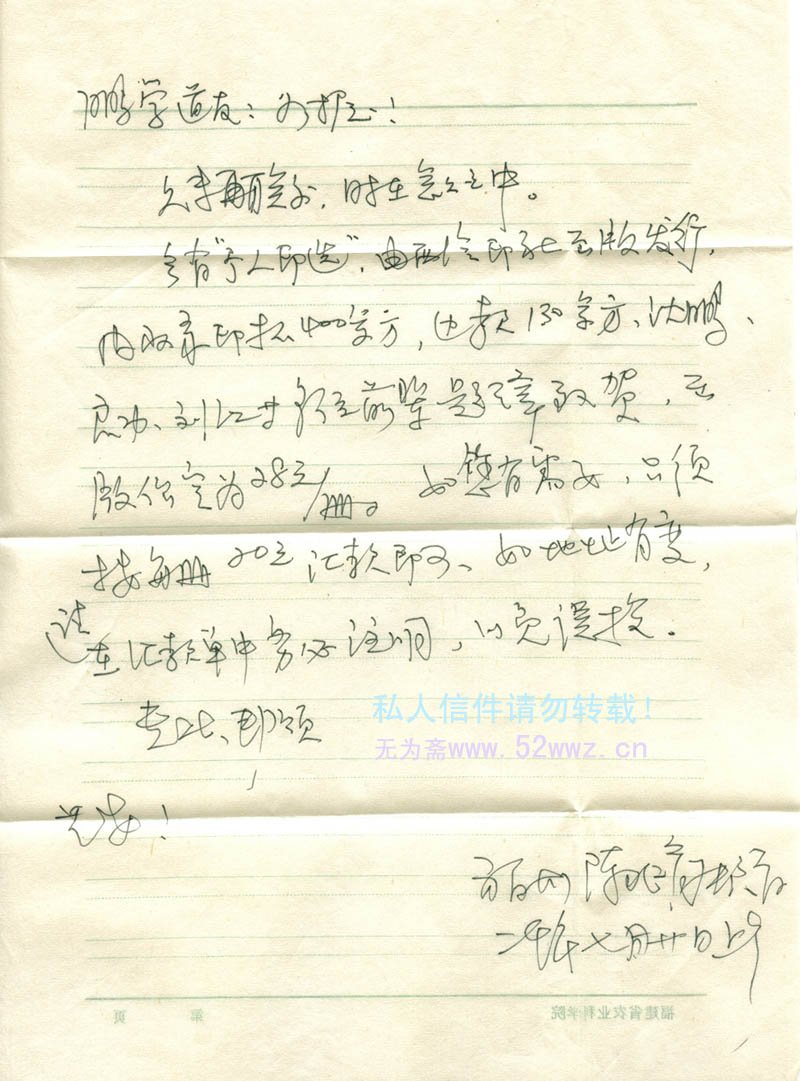 鹏学道友：为艺！
久未晤面，时在念之中。
今有“　人印选”，由西泠印社出版发行，
内收录印拓400余方，边款130余方、沈鹏、
启功、刘江等　　前辈题　致贺，出
版价定为28元/册。如您有需求，只须
按每册20元汇款即可、如地址有变，
请在汇款单中务必注明，以免误投。
专此、即颂
艺安！
陈
二　年七月廿日上
私人信件请勿转载！
无为斋www.52wwz.cn
福建省农业科学院
第　页